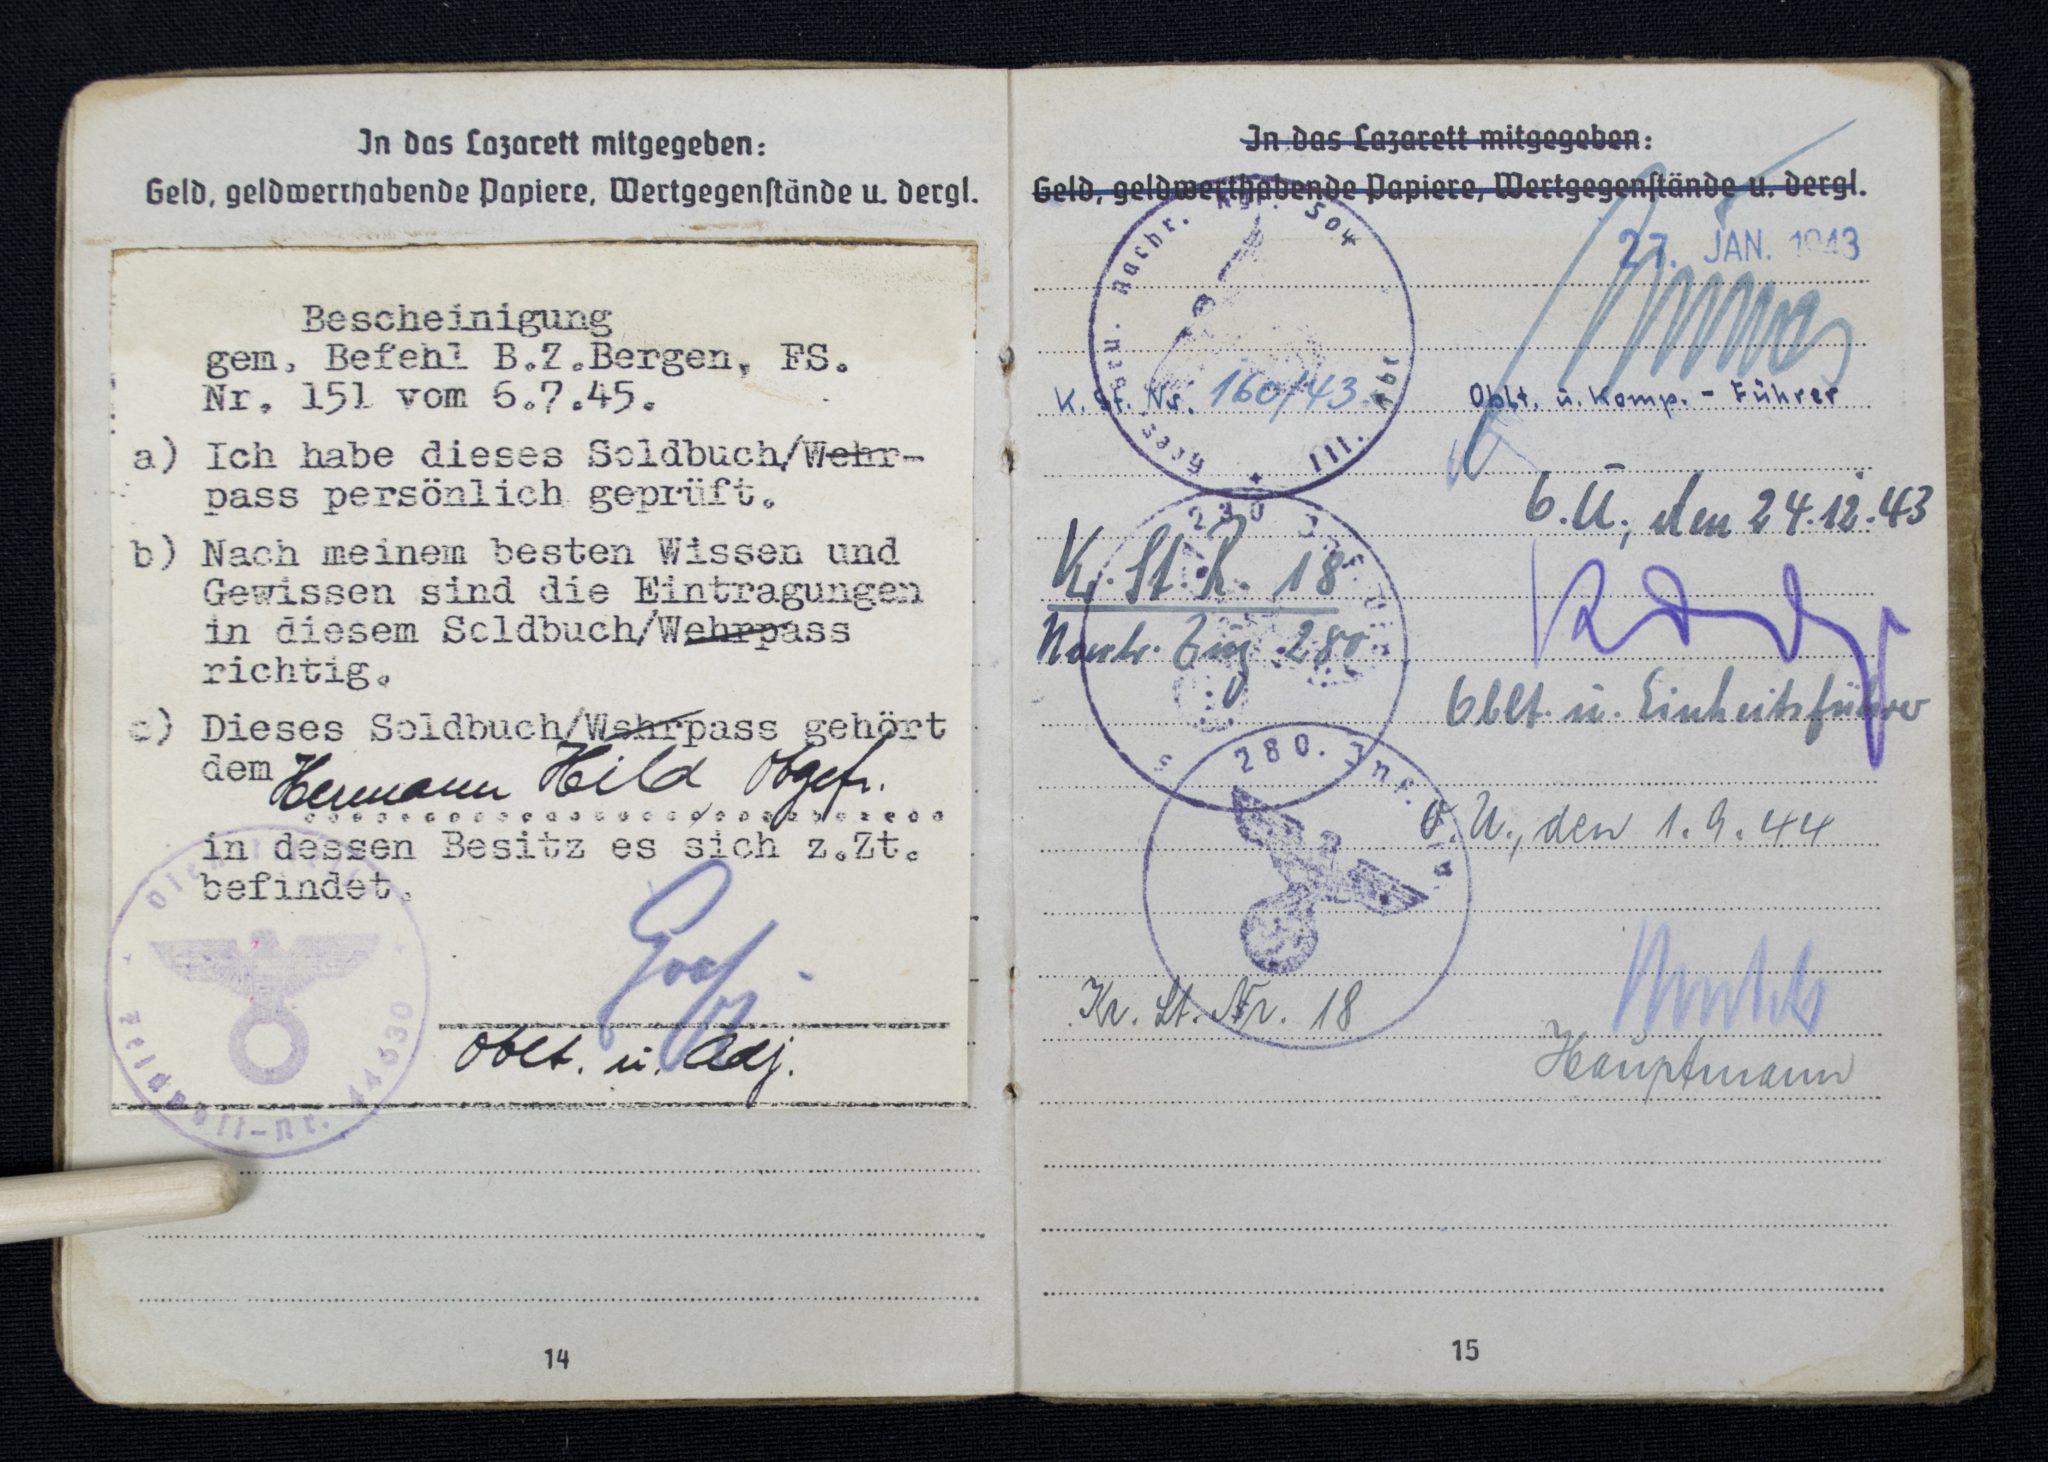 In das Lazarett mitgegeben:
Geld, geldwerthabende Papiere, Wertgegenstände u. dergl.
Bescheinigung
gem. Befehl B.Z.Bergen, FS.
Nr. 151 vom 6.7.45.
a) Ich habe dieses Soldbuch/Wehr-
pass persönlich geprüft.
b) Nach meinem besten Wissen und
Gewissen sind die Eintragungen
in diesem Soldbuch/Wehrpass
richtig.
c) Dieses Soldbuch/Wehrpass gehört
dem Hermann Hild Obgefr.
in dessen Besitz es sich z.Zt.
befindet.
Oblt. u. Adj.
Feldpost-Nr. 44630
14
In das Lazarett mitgegeben:
Geld, geldwerthabende Papiere, Wertgegenstände u. dergl.
Nachr. Rgt. 504
III. Abt
27. JAN. 1943
K. St. Nr. 160/43
Oblt. u. Komp. - Führer
O.U., den 24.12.43
Kr. St. N. 18
Nachr. Zug 280
Oblt. u. Einheitsführer
280. Inf.
O.U., den 1.9.44
Kr. St. Nr. 18
Hauptmann
15